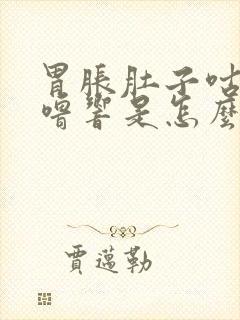 胃脹肚子咕
嚕響是怎麼
賈邁勒